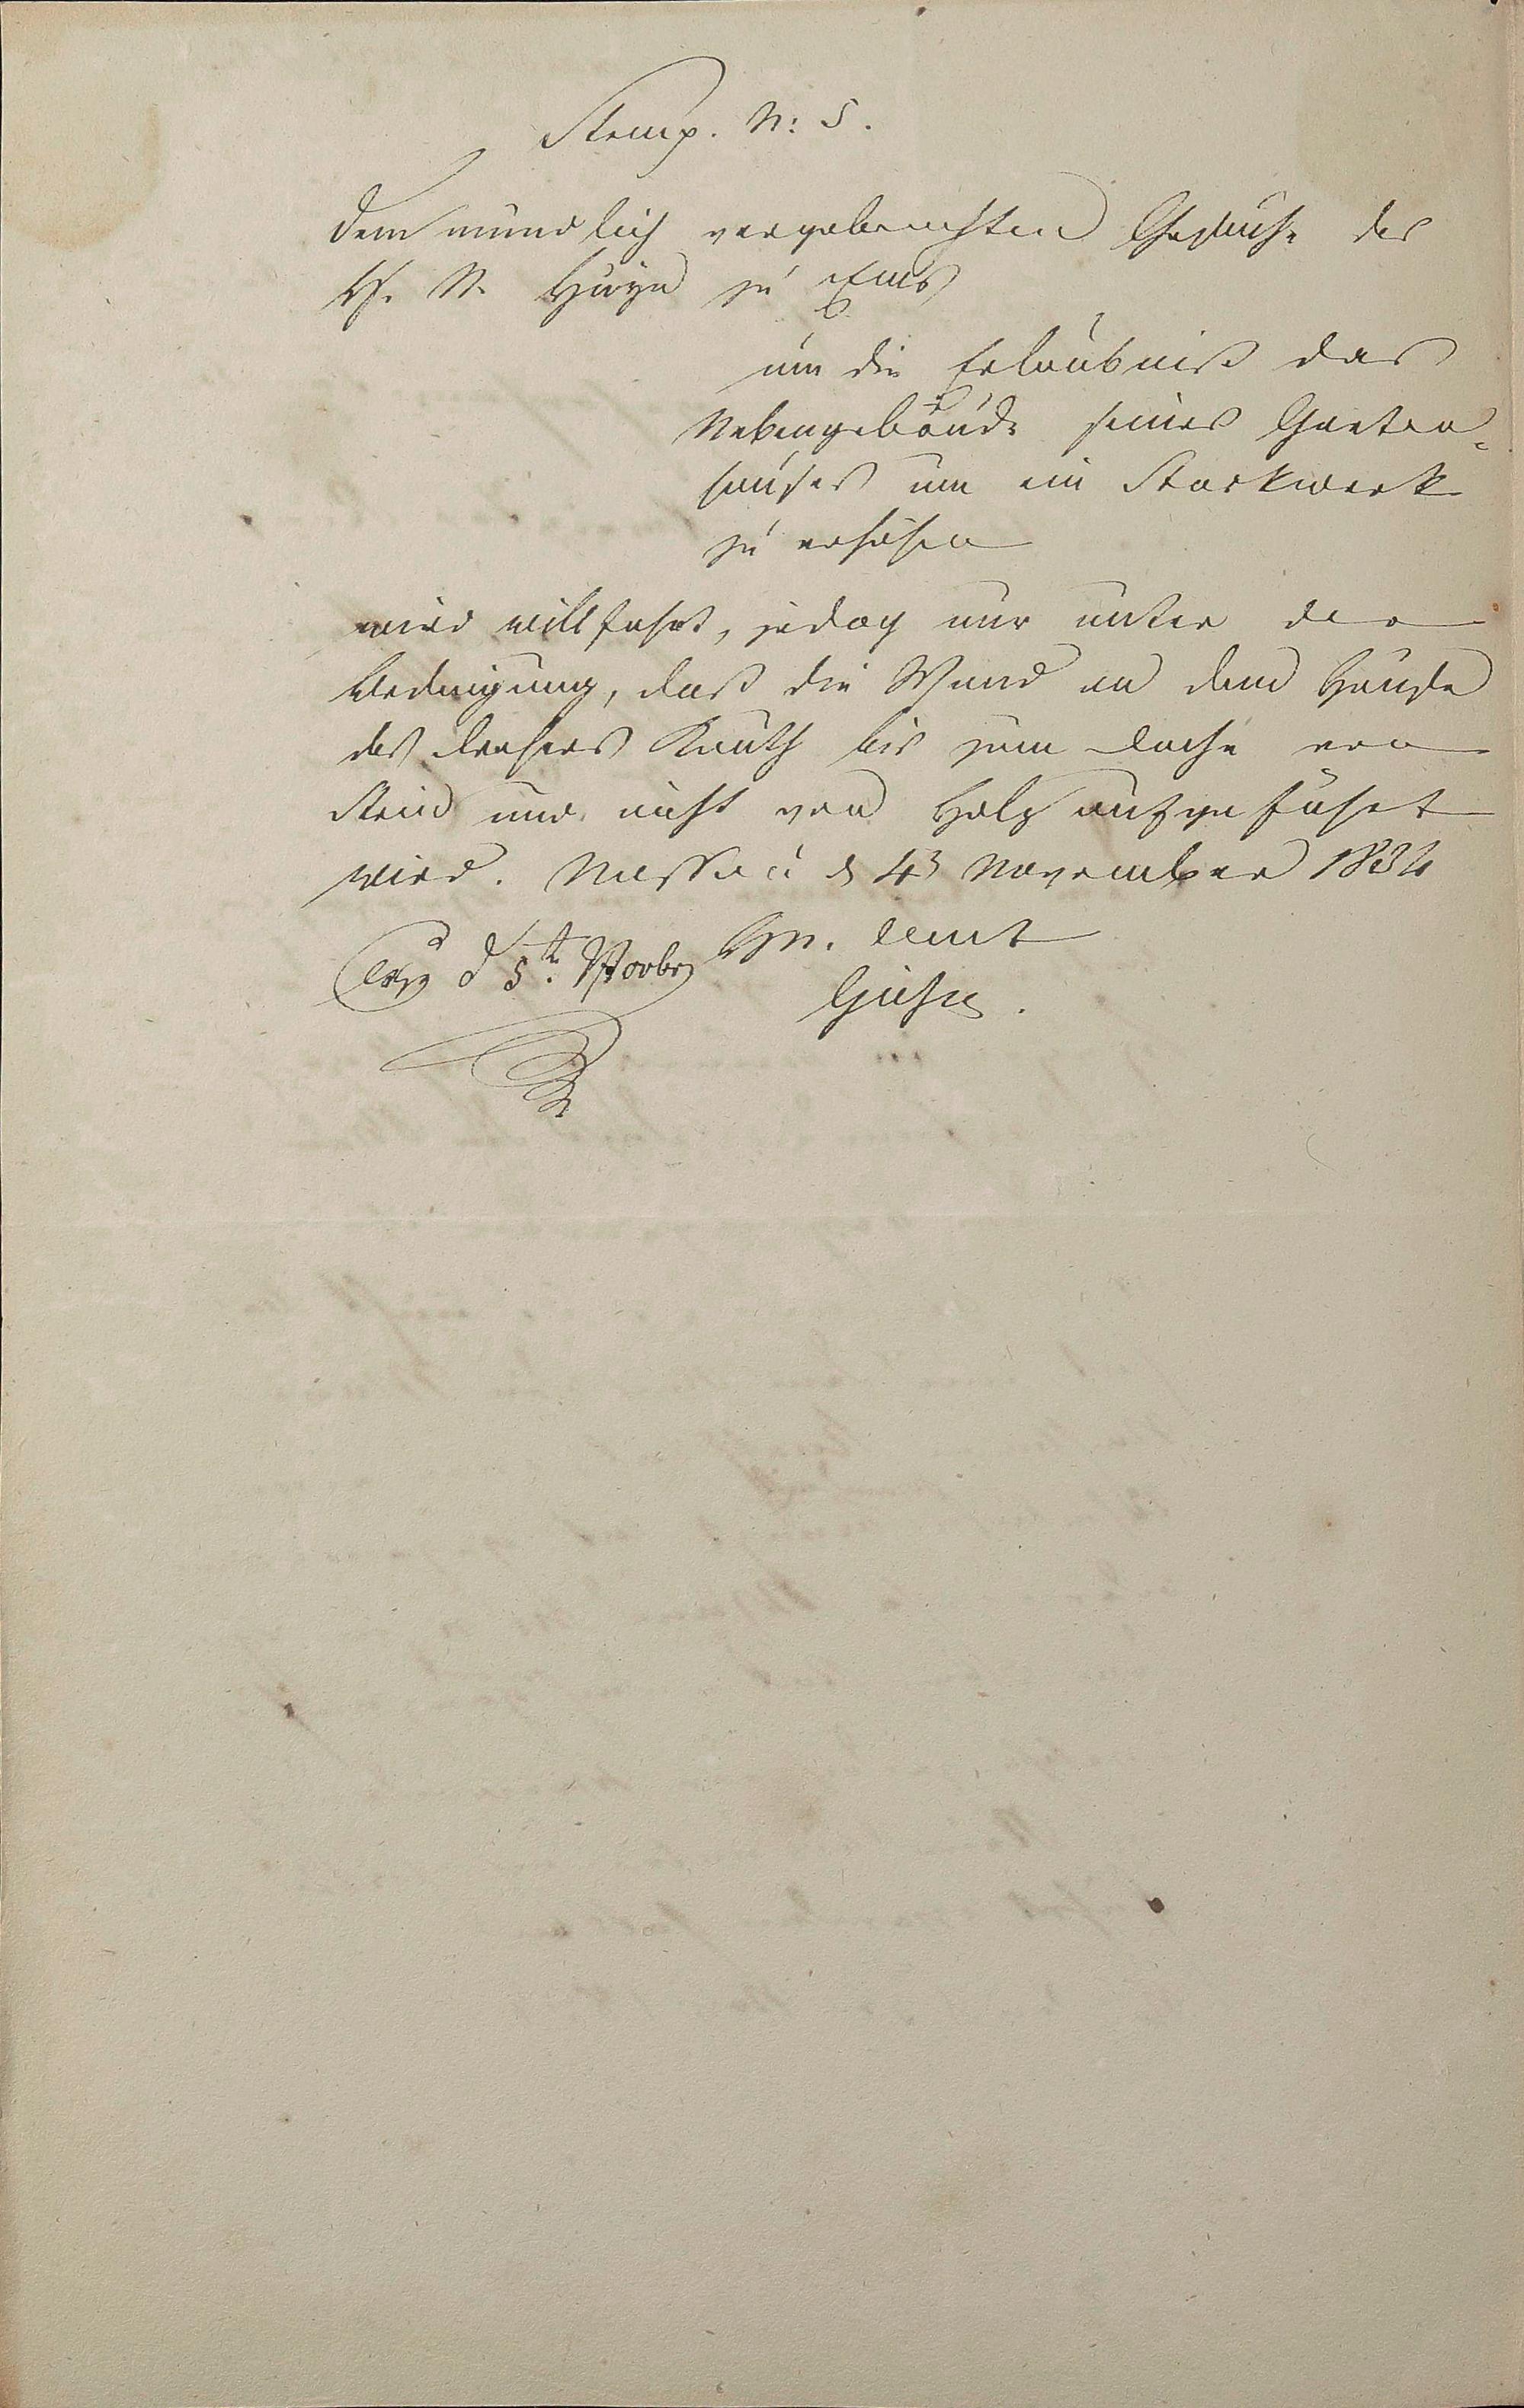 Stemp. N: 5.
Dem mündlich vorgebrachten Gesuche des
H. N. Hüyn zu Ems
um die Erlaubniß das
Nebengebäude seines Garten-
hauses um ein Stockwerk
zu erhöhen
wird willfahrt, jedoch nur unter der
Bedingung, daß die Wand an dem Hause
des Drehers Kauth bis zum Dache von
Stein und nicht von Holz aufgeführt
wird. Nassau d 4 November 1834
d 5t. Novbr Hzn. Amt